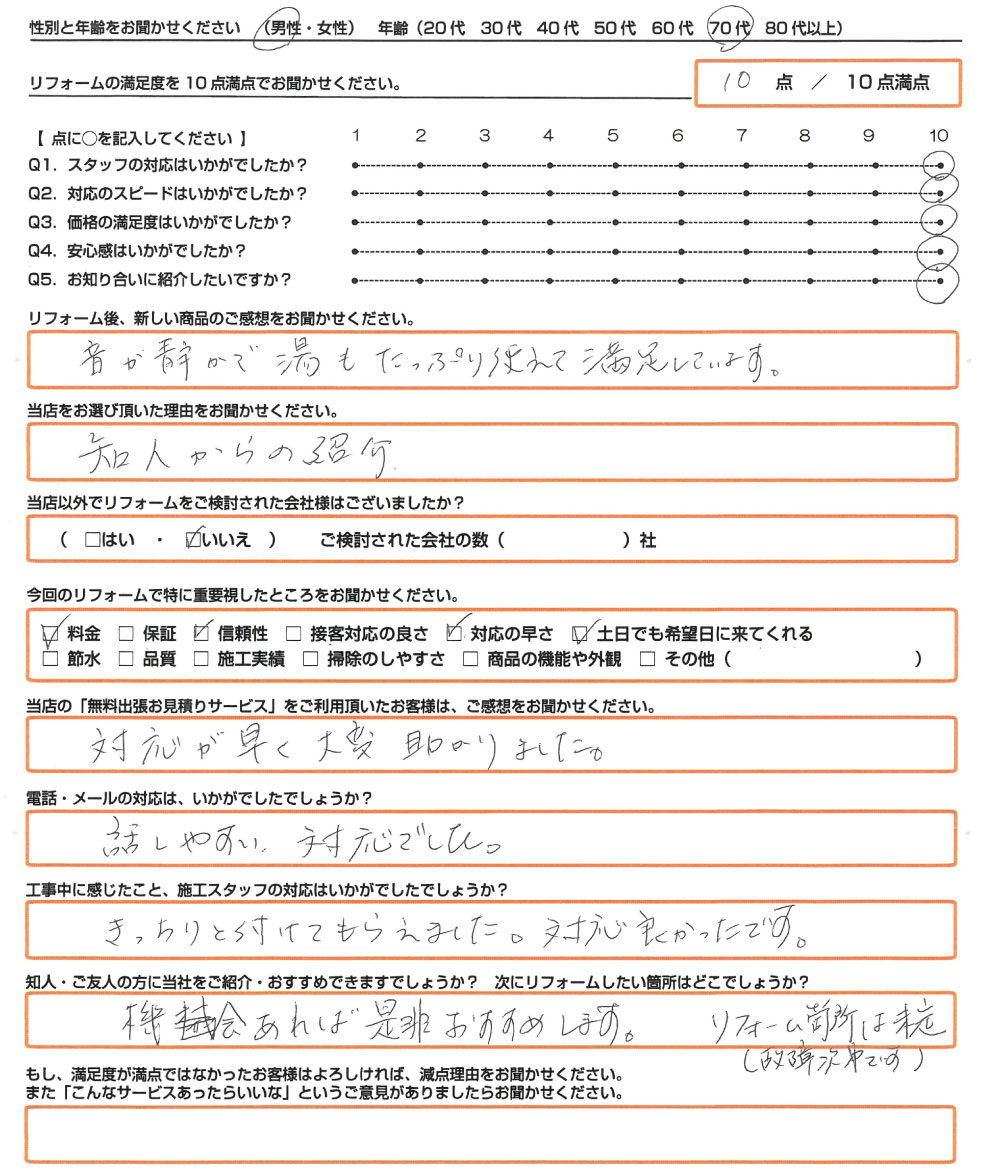 性別と年齢をお聞かせください （男性・女性） 年齢（20代 30代 40代 50代 60代 70代 80代以上）
リフォームの満足度を10点満点でお聞かせください。 10 点 ／ 10点満点
【 点に○を記入してください 】 1 2 3 4 5 6 7 8 9 10
Q1. スタッフの対応はいかがでしたか？
Q2. 対応のスピードはいかがでしたか？
Q3. 価格の満足度はいかがでしたか？
Q4. 安心感はいかがでしたか？
Q5. お知り合いに紹介したいですか？
リフォーム後、新しい商品のご感想をお聞かせください。
音が静かで湯もたっぷり使えて満足しています。
当店をお選び頂いた理由をお聞かせください。
知人からの紹介
当店以外でリフォームをご検討された会社様はございましたか？
（ □はい ・ ☑いいえ ） ご検討された会社の数（ ）社
今回のリフォームで特に重要視したところをお聞かせください。
☑ 料金 □ 保証 ☑ 信頼性 □ 接客対応の良さ ☑ 対応の早さ ☑ 土日でも希望日に来てくれる
□ 節水 □ 品質 □ 施工実績 □ 掃除のしやすさ □ 商品の機能や外観 □ その他（ ）
当店の「無料出張お見積りサービス」をご利用頂いたお客様は、ご感想をお聞かせください。
対応が早く大変助かりました。
電話・メールの対応は、いかがでしたでしょうか？
話しやすい対応でした。
工事中に感じたこと、施工スタッフの対応はいかがでしたでしょうか？
きっちりと付けてもらえました。対応良かったです。
知人・ご友人の方に当社をご紹介・おすすめできますでしょうか？ 次にリフォームしたい箇所はどこでしょうか？
機会あれば是非おすすめします。 リフォーム箇所は未定
（故障次第です）
もし、満足度が満点ではなかったお客様はよろしければ、減点理由をお聞かせください。
また「こんなサービスあったらいいな」というご意見がありましたらお聞かせください。